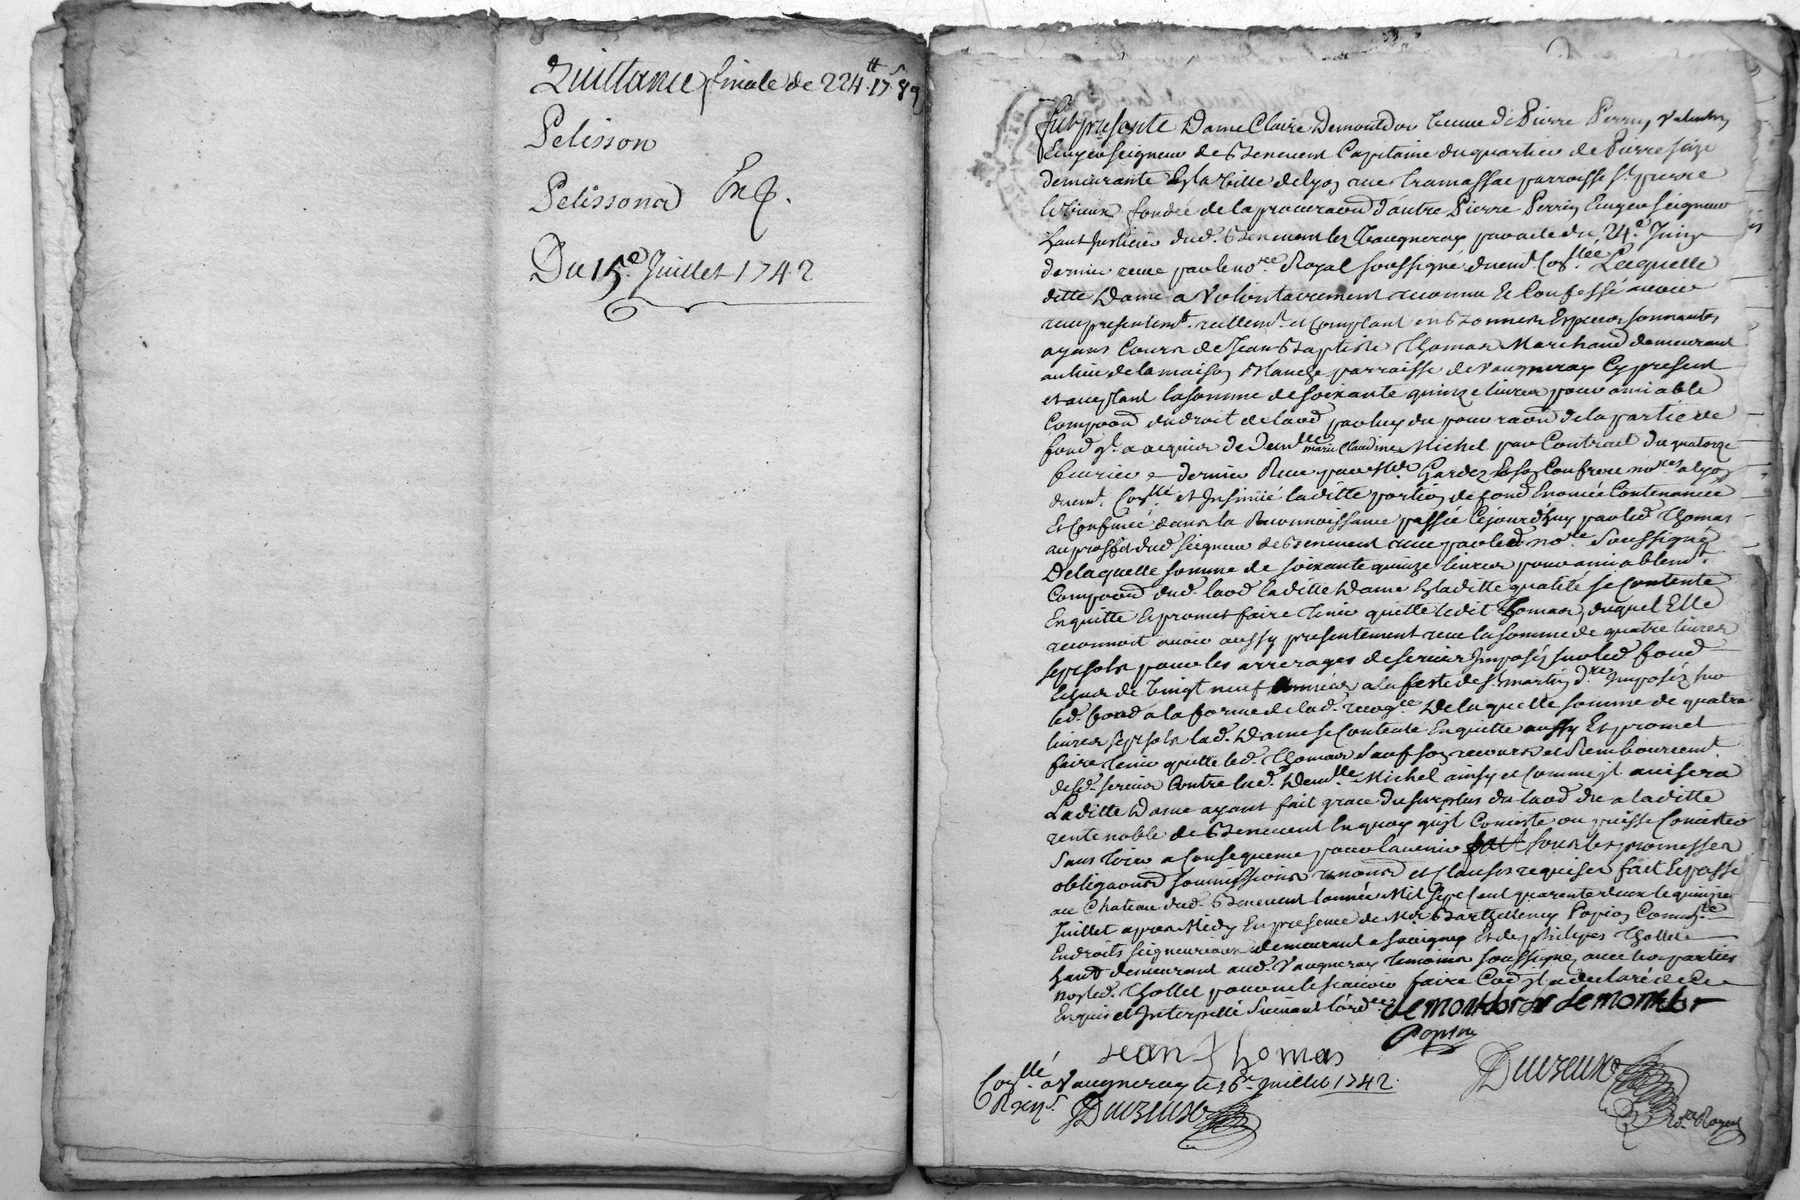 Quittance finale de 224.tt 17.s 8 9
Pelisson
Pelissond Exp.
Du 15.e Juillet 1742
fut presente Dame Claire Demontdor veuve de Pierre Perrin Valentin
Ecuyer seigneur de Benevent Capitaine du quartier de Pierre Seize
demeurante En la ville de lyon rue Tramassac parroisse st. pierre
le vieux fondée de la procuraon d'autre Pierre Perrin Ecuyer seigneur
haut justicier dud. Benevent les Vaugneray par acte du 24.e Juin
dernier receu par le no.re Royal soussigné duem.t Con.llée Laquelle
ditte Dame a volontairement reconnu Et Confessé avoir
receu presentem.t reellem.t et Comptant en Bonnes Especes sonnantes
ayans Cours de Jean Baptiste Thomas Marchand demeurant
au lieu de la maison Blanche parroisse de Vaugneray Cy present
et acceptant la somme de soixante quinze livres pour amiable
Composon du droit de laod par luy du pour raon de la partie de
fond qu'il a acquise de Dem.lle marie Claudine Michel par Contrat du quatorze
fevrier dernier Receu par M.e Gardes Et son Confrere no.res a lyon
duem.t Con.llé et Insinüé laditte portion de fond Enoncée Contenancée
Et Confinée dans la Reconnoissance passée Cejourd'huy par led. Thomas
au proffit dud. seigneur de Benevent receu par led. no.re soussigné
De laquelle somme de soixante quinze livres pour amiablem.t
Composon dud. laod laditte Dame En laditte qualité se Contente
En quitte Et promet faire tenir quitte ledit Thomas, duquel Elle
reconnoit avoir aussy presentement receu la somme de quatre livres
sept sols pour les arrerages de servis Imposés sur led. fond
Echus de vingt neuf années a la feste de st. martin d.re Imposés sur
led. fond a la forme de lad. recog.ce De laquelle somme de quatre
livres sept sols lad. Dame se Contente En quitte aussy Et promet
faire tenir quitte led. Thomas sauf son recours et Rembourcem.t
desd. servis Contre lad. Dem.lle Michel ainsy et Comme il avisera
Laditte Dame ayant fait grace du surplus du laod du a laditte
rente noble de Benevent En quoy qu'il Consiste ou puisse Consister
Sans tirer a Consequence pour l'avenir sous les promesses
obligaons soumissions renonons et clauses requises fait Et passé
au Chateau dud. Benevent l'année Mil sept Cent quarente deux le quinze
Juillet apres Midy En presence de M.re Barthellemy Popin Comm.re
En droits seigneuriaux demeurant a savigny Et de philipes Thollet
demeurant aud. Vaugneray temoins soussignez avec les parties
non led. Thollet pour ne le scavoir faire Comme il a declaré de ce
Enquis et Interpellé suivant l'ord.ce demontdor demontdor
Popin
Jean Thomas
Duvreux
no.re Royal
Con.llé a Vaugneray le 16.e Juillet 1742.
Duvreux